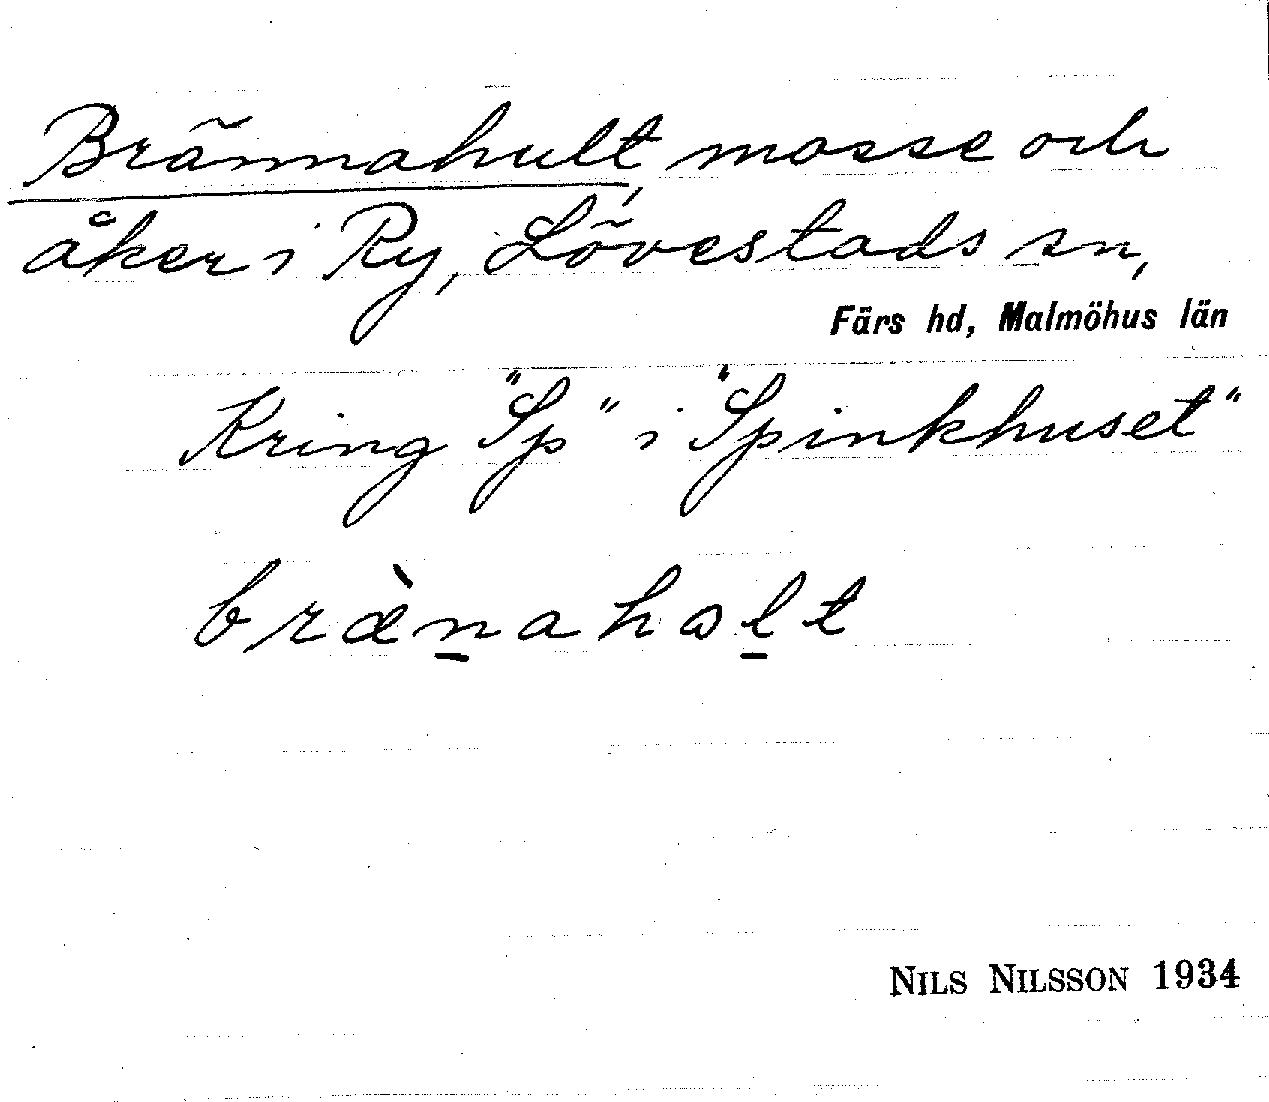 Brännahult, mosse och
åker i Ry, Lövestads sn,
Färs hd, Malmöhus län
Kring "Sp" i "Spinkhuset"
bræ̀n̠ahal̠t
NILS NILSSON 1934